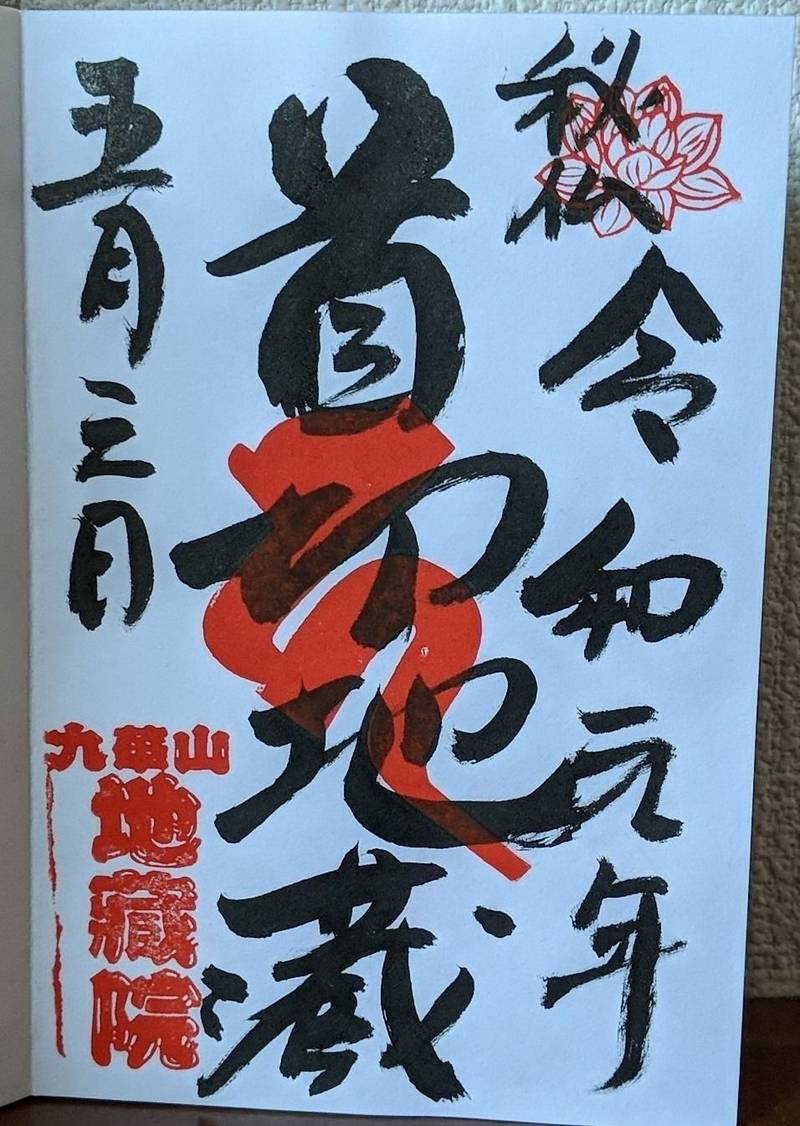 秘仏
令和元年
首切地蔵
五月三日
九華山
地蔵院